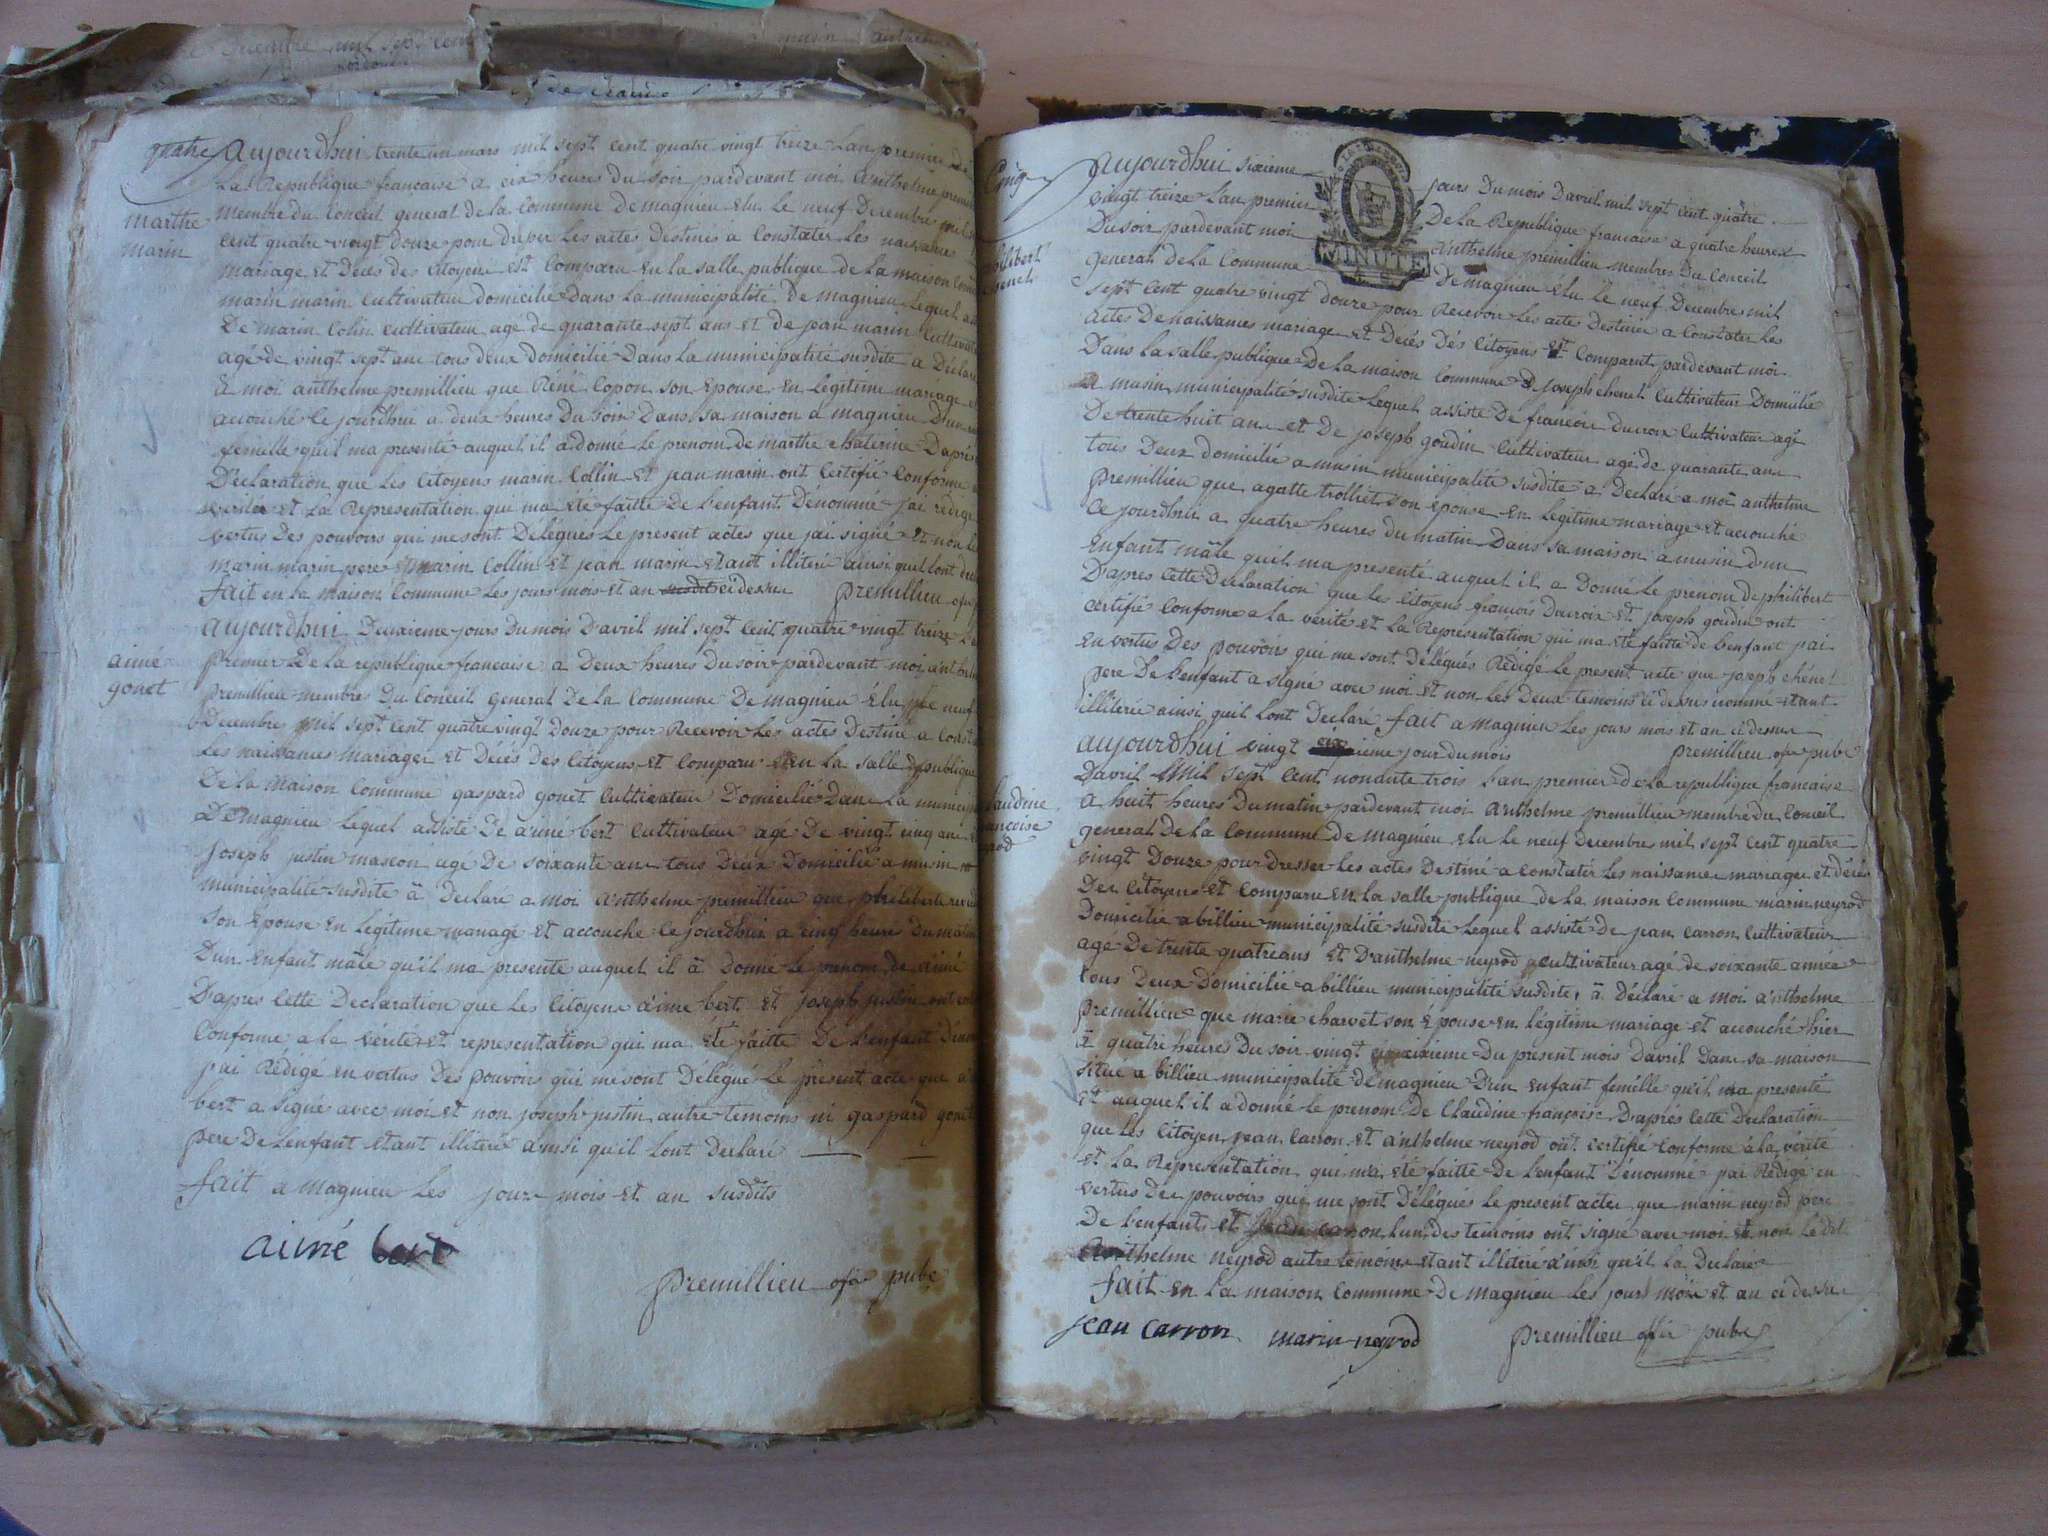 quatre
marthe
marin
aujourdhui trente un mars mil sept cent quatre vingt treize Lan premier de
La Republique francaise a six heures du soir pardevant moi anthelme
membre du Conceil general de la Commune de magnieu elu Le neuf Decembre mil
cent quatre vingt douze pour Les actes Destinés a Constater Les naissances
mariage et Décés des Citoyens est Comparu en la salle publique de la maison
marin marin Cultivateur domicilié dans La municipalité De magnieu Lequel
De marin Colin Cultivateur agé de quarante sept ans et de jean marin
agé de vingt sept ans tous deux domicilié Dans La municipalité susdite a Déclaré
a moi anthelme premillieu que Réné Copon son Epouse en Légitime mariage
acouché Le jourdhui a deux heures Du soir Dans sa maison a magnieu
femelle quil ma presenté auquel il a donné Le prenom de marthe Daprés
Déclaration que Les Citoyens marin Collin et jean marin ont Certifié Conforme
verité et La Representation que ma eté faitte De Lenfant Dénommé jai redigé
vertus Des pouvoirs qui me sont Délégués Le present actes que jai signé et non
marin marin pere et marin Collin et jean marin etant illiteré ainsi quil Lont
fait en La maison Commune Les jours mois et an susdit ci dessus premillieu
aimé
gonet
aujourdhui Deuxieme jours Du mois D'avril mil sept Cent quatre vingt treize
premier De La republique francaise a Deux heures Du soir pardevant moi
premillieu membres Du Conceil general De La Commune De magnieu Elu Le neuf
Decembre mil sept cent quatre vingt Douze pour Recevoir Les actes Destiné a
Les naissances mariages et Décés Des Citoyens est Comparu en La salle publique
De La maison Commune gaspard gonet Cultivateur Domicilié Dans La
De magnieu Lequel assisté De aimé bert Cultivateur agé De vingt cinq ans
joseph justin mascon agé De soixante ans tous Deux Domicilié a musin
municipalité susdite a Declaré a moi anthelme premillieu que philiberte
son Epouse en Légitime mariage et accouché Ce jourdhui a cinq heure Du matin
D'un Enfant mâle qu'il ma presenté auquel il a Donné Le prenom de aimé
D'apres Cette Declaration que Les Citoyens aimé bert et joseph justin ont
Conforme a la vérité et representation qui ma été faitte De Lenfant
j'ai Rédigé en vertus Des pouvoirs qui me sont Délégué Le present acte que
bert a signé avec moi et non joseph justin autre temoins ni gaspard gonet
pere De Lenfant etant illiteré ainsi qu'il Lont Declaré
fait a magnieu Les jours mois et an susdits
aimé bert
premillieu ofi pube
Cinq
aujourdhui sixieme jours Du mois D'avril mil sept Cent quatre
vingt treize L'an premier De La Republique francaise a quatre heures
Du soir pardevant moi anthelme premillieu membres Du Conceil
MINUTE
general de La Commune De magnieu elu Le neuf Decembre mil
sept Cent quatre vingt douze pour Recevoir Les actes Destinés a Constater Les
actes De naissances mariage et Décés Dés Citoyens est Comparut pardevant moi
Dans La salle publique De La maison Commune joseph chenet Cultivateur Domicilié
a musin municipalité susdite Lequel assisté De francois ducroix Cultivateur agé
De trente huit ans et De joseph goudin Cultivateur agé de quarante ans
tous Deux domicilié a musin municipalité susdite a Declaré a moi anthelme
premillieu que agatte trolliet son Epouse en Legitime mariage et accouché
Ce jourdhui a quatre heures du matin Dans sa maison a musin d'un
Enfant mâle quil ma presenté auquel il a Donné Le prenom De philibert
D'apres Cette Declaration que Les Citoyens francois Ducroix et joseph goudin ont
Certifié Conforme a La verité et La Representation qui ma eté faitte de Lenfant j'ai
en vertus Des pouvoirs qui me sont Délégués Rédigé Le present acte que joseph chénet
pere De Lenfant a signé avec moi et non Les Deux temoins ci dessus nommé etant
illiteré ainsi qu'il Lont Declaré fait a magnieu Les jours mois et an ci dessus
premillieu ofi pube
Claudine
francoise
neyrod
aujourdhui vingt six ieme jour du mois
Davril Mil sept Cent nonante trois L'an premier De La republique francaise
a huit heures Du matin pardevant moi anthelme premillieu membre du Conceil
general De La Commune de magnieu elu Le neuf Decembre mil sept Cent quatre
vingt Douze pour Dresser Les actes Destiné a Constater Les naissances mariages et décés
Des Citoyens est Comparu en La salle publique De La maison Commune marin neyrod
Domicilié a billieu municipalité susdite Lequel assisté De jean Carron Cultivateur
agé De trente quatre ans et D'anthelme neyrod Cultivateur agé de soixante année
tous Deux Domicilié a billieu municipalité susdite, a Déclaré a moi anthelme
premillieu que marie charvet son Epouse en Légitime mariage et acouché hier
a quatre heures Du soir vingt Du present mois D'avril Dans sa maison
situé a billieu municipalité De magnieu D'un enfant femelle qu'il ma presenté
et auquel il a donné Le prenom De Claudine francoise D'aprés Cette Declaration
que Les Citoyens jean Carron et anthelme neyrod ont certifié Conforme á La verité
et La Representation qui ma eté faitte De Lenfant Dénommé j'ai Rédigé en
vertus Des pouvoirs qui me sont Délégués Le present actes que marin neyrod pere
De Lenfant et jean Carron L'un Des temoins ont signé avec moi et non Le dit
anthelme neyrod autre temoins etant illiteré ainsi qu'il La Declaré
fait en La maison Commune De magnieu Les jours mois et an ci dessus
jean carron marin neyrod premillieu ofi pube